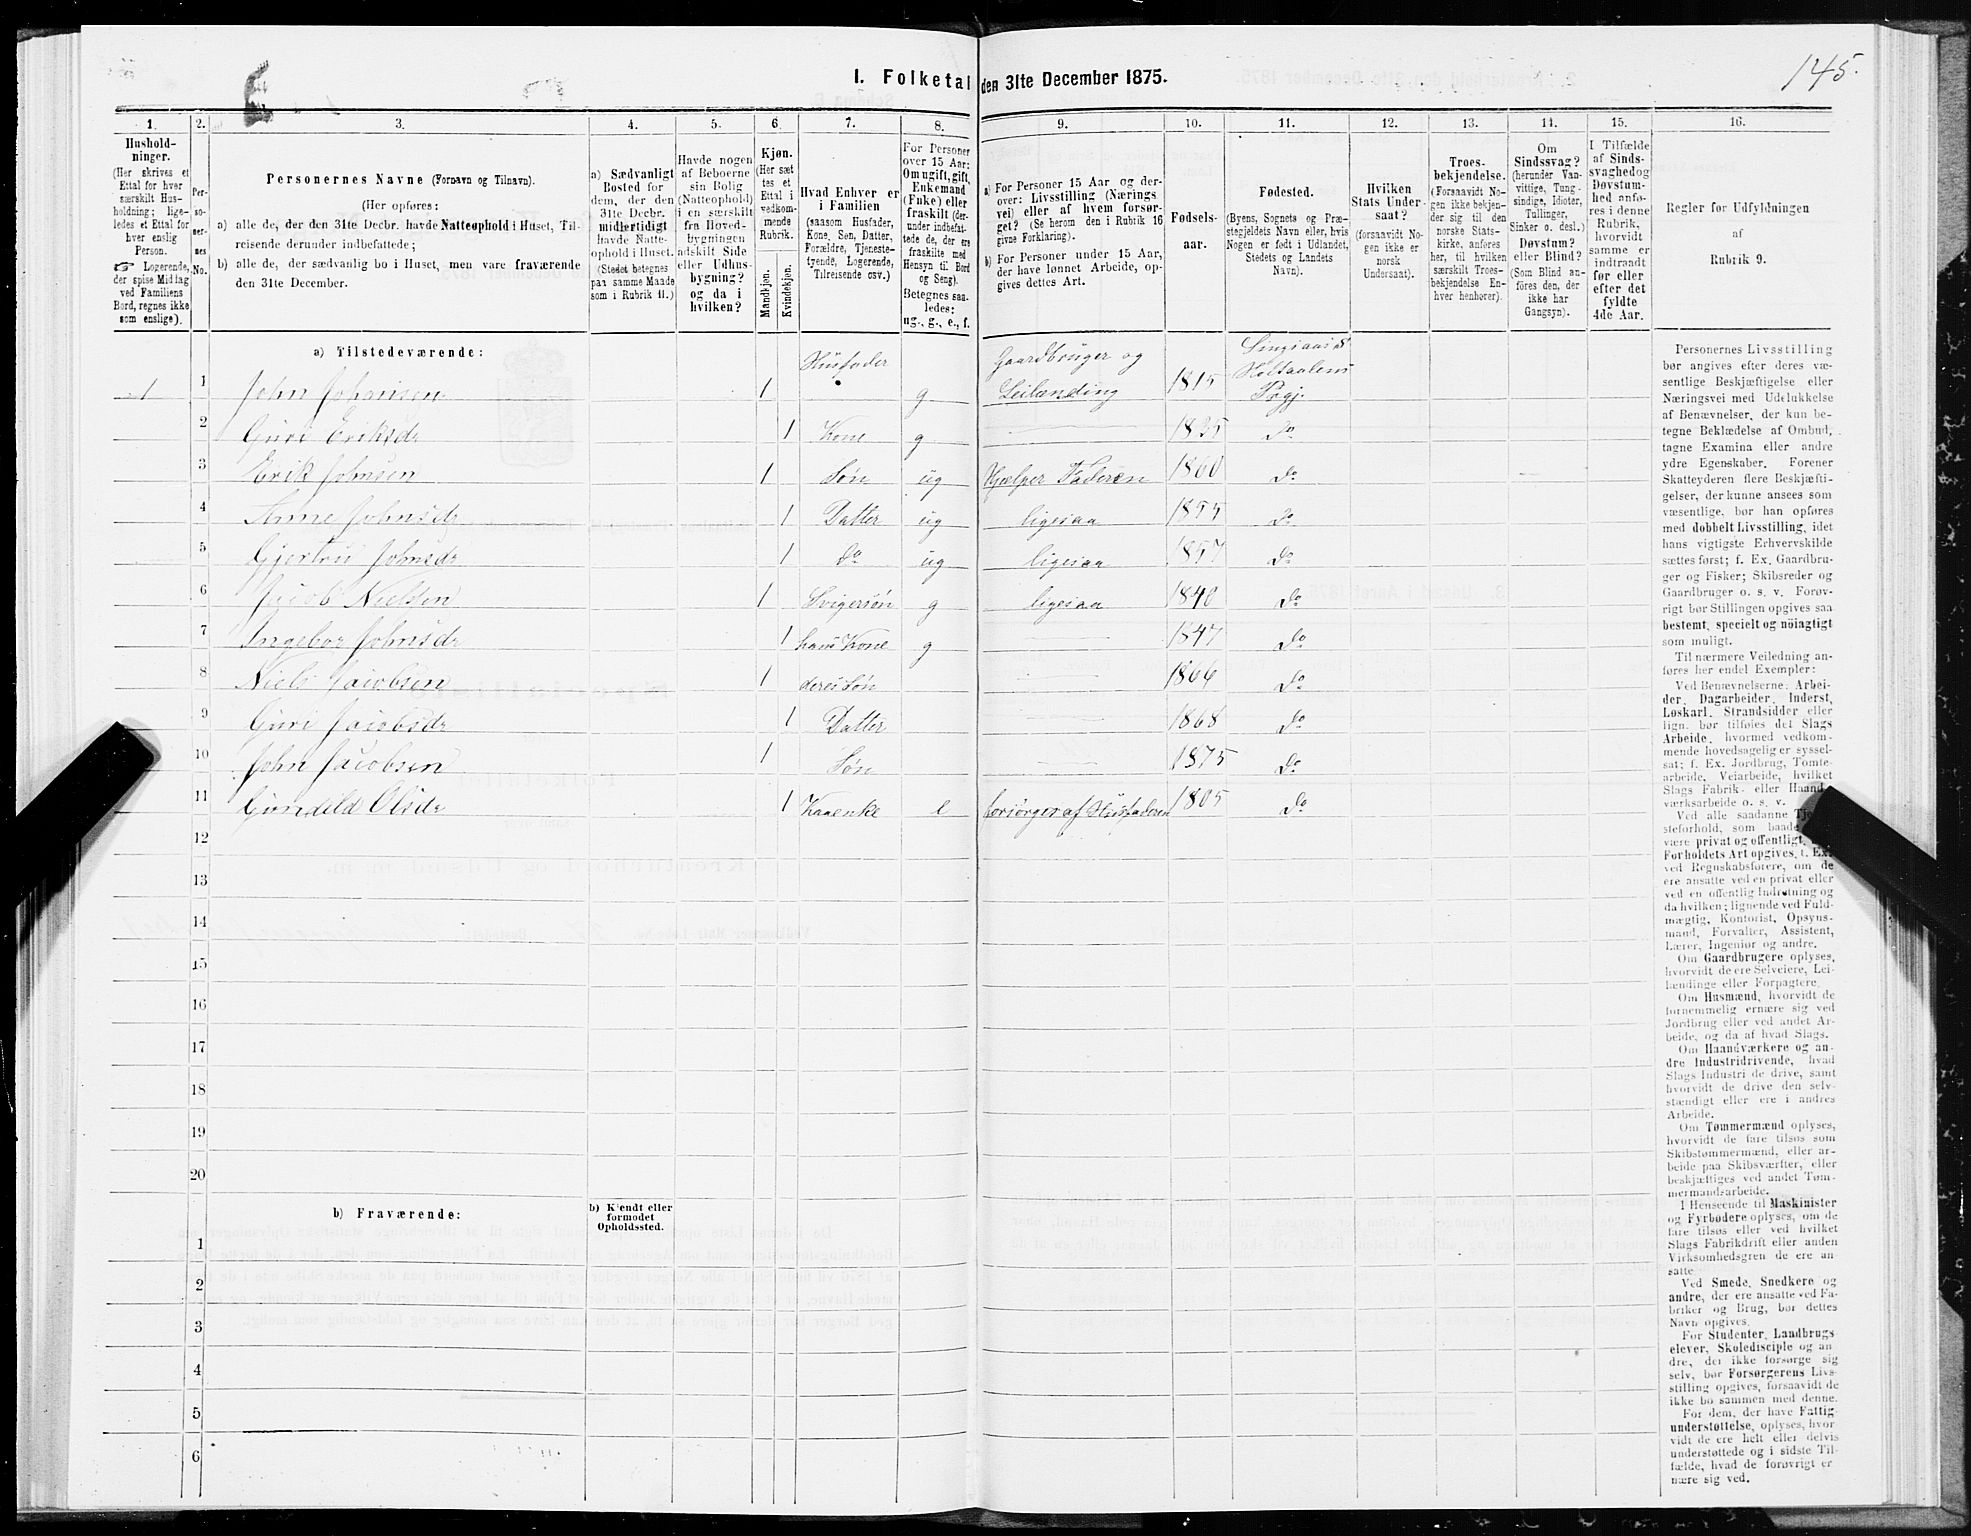 145.
1. Folketal den 31te December 1875.
1. 2. 3. 4. 5. 6. 7. 8. 9. 10. 11. 12. 13. 14. 15. 16.
Hushold-
ninger.
(Her skrives et
Ettal for hver
særskilt Hus-
holdning; lige-
ledes et Ettal for
hver enslig
Person.
☞ Logerende,
der spise Middag
ved Familiens
Bord, regnes ikke
som enslige).
Per-
so-
ner-
nes
No.
Personernes Navne (Fornavn og Tilnavn).
(Her opføres:
a) alle de, der den 31te Decbr. havde Natteophold i Huset, Til-
reisende derunder indbefattede;
b) alle de, der sædvanlig bo i Huset, men vare fraværende
den 31te December.
a) Sædvanligt
Bosted for
dem, der den
31te Decbr.
midlertidigt
havde Natte-
ophold i Huset.
(Stedet betegnes
paa samme Maade
som i Rubrik 11.)
Havde nogen
af Beboerne
sin Bolig
(Natteophold)
i en særskilt
fra Hoved-
bygningen
adskilt Side
eller Udhus-
bygning?
og da i
hvilken?
Kjøn.
(Her sæt
tes et
Ettal i
vedkom-
mende
Rubrik.
Mandkjøn.
Kvindekjøn.
Hvad Enhver er
i Familien
(saasom Husfader,
Kone, Søn, Datter,
Forældre, Tjeneste-
tyende, Logerende,
Tilreisende osv.)
For Personer
over 15 Aar:
Om ugift, gift,
Enkemand
(Enke) eller
fraskilt (der-
under indbefat-
tede de, der ere
fraskilte med
Hensyn til Bord
og Seng).
Betegnes saa-
ledes:
ug., g., e., f.
a) For Personer 15 Aar og der-
over: Livsstilling (Nærings
vei) eller af hvem forsør-
get? (Se herom den i Rubrik 16
givne Forklaring).
b) For Personer under 15 Aar,
der have lønnet Arbeide, op-
gives dettes Art.
Fødsels-
aar.
Fødested.
(Byens, Sognets og Præ-
stegjeldets Navn eller, hvis
Nogen er født i Udlandet,
Stedets og Landets
Navn).
Hvilken
Stats Under-
saat?
(forsaavidt No-
gen ikke er
norsk
Undersaat).
Troes-
bekjendelse.
(Forsaavidt No-
gen ikke bekjen-
der sig til den
norske Stats-
kirke, anføres
her, til hvilken
særskilt Troes-
bekjendelse En-
hver henhører).
Om
Sindssvag?
(herunder Van-
vittige, Tung-
sindige, Idioter,
Tullinger,
Sinker o. desl.)
Døvstum?
eller Blind?
(Som Blind an-
føres den, der
ikke har
Gangsyn).
I Tilfælde
af Sinds-
svaghed og
Døvstum-
hed anfø-
res i denne
Rubrik,
hvorvidt
samme er
indtraadt
før eller
efter det
fyldte
4de Aar.
Regler for Udfyldningen
af
Rubrik 9.
a) Tilstedeværende:
1 1 John Johansen 1 Husfader g Gaardbruger og Leilænding 1815 Singsaas Holtaalens Prgj.
2 Guri Eriksdr 1 Kone g 1825 do
3 Erik Johnsen 1 Søn ug Hjælper Faderen 1860 do
4 Anne Johnsdr 1 Datter ug ligesaa 1855 do
5 Gjertru Johnsdr 1 do ug ligesaa 1857 do
6 Jacob Nielsen 1 Svigersøn g ligesaa 1840 do
7 Ingebor Johnsdr 1 hans Kone g 1847 do
8 Niels Jacobsen 1 deres Søn 1866 do
9 Guri Jacobsdr 1 Datter 1868 do
10 John Jacobsen 1 Søn 1875 do
11 Gunhild Olsdr 1 e forsørges af Husfaderen 1805 do
12
13
14
15
16
17
18
19
20
b) Fraværende:
b) Kjendt eller
formodet
Opholdssted.
1
2
3
4
5
6
Personernes Livsstilling
bør angives efter deres væ-
sentlige Beskjæftigelse eller
Næringsvei med Udelukkelse
af Benævnelser, der kun be-
tegne Beklædelse af Ombud,
tagne Examina eller andre
ydre Egenskaber. Forener
Skatteyderen flere Beskjæfti-
gelser, der kunne ansees som
væsentlige, bør han opføres
med dobbelt Livsstilling, idet
hans vigtigste Erhvervskilde
sættes først; f. Ex. Gaardbru-
ger og Fisker; Skibsreder og
Gaardbruger o. s. v. Forøv-
rigt bør Stillingen opgives saa
bestemt, specielt og nöiagtigt
som muligt.
Til nærmere Veiledning an-
føres her endel Exempler:
Ved Benævnelserne: Arbei-
der, Dagarbeider, Inderst,
Løskarl, Strandsidder eller
lign. bør tilføies det Slags
Arbeide, hvormed vedkom-
mende hovedsagelig er syssel-
sat; f. Ex. Jordbrug, Tomte-
arbeide, Veiarbeide, hvilket
Slags Fabrik- eller Haand-
værksarbeide o. s. v.
Ved alle saadanne
steforhold, som baade
være privat og offentligt,
Forholdets Art opgives, f. Ex.
ved Regnskabsførere, om de
ere ansatte ved en privat eller
ved en offentlig Indretning og
da hvilken; lignende ved Fuld-
mægtig, Kontorist, Opsyns-
mand, Forvalter, Assistent,
Lærer, Ingeniør og andre.
Om Gaardbrugere oplyses,
hvorvidt de ere Selveiere, Lei-
lændinge eller Forpagtere.
Om Husmænd, hvorvidt de
fornemmelig ernære sig ved
Jordbrug eller ved andet Ar-
beide, og da af hvad Slags.
Om Haandværkere og an-
dre Industridrivende, hvad
Slags Industri de drive, samt
hvorvidt de drive den selv-
stændigt eller ere i andres
Arbeide.
Om Tømmermænd oplyses,
hvorvidt de fare tilsøs som
Skibstømmermænd, eller ar-
beide paa Skibsværfter, eller
beskjæftiges ved andet Tøm-
mermandsarbeide.
I Henseende til Maskinister
og Fyrbødere oplyses, om de
fare tilsøs eller ved hvilket
Slags Fabrikdrift eller anden
Virksomhedsgren de ere an-
satte
Ved Smede, Snedkere og
andre, der ere ansatte ved Fa-
briker og Brug, bør dettes
Navn opgives.
For Studenter, Landbrugs
elever, Skoledisciple og an
dre, der ikke forsørge sig
selv, bør Forsørgerens Livs-
stilling opgives, forsaavidt de
ikke bo sammen med denne.
For dem, der have Fattig-
understøttelse, oplyses, hvor
vidt de ere helt eller delvis
understøttede og i sidste Til-
fælde, hvad de forøvrigt er
nære sig ved.